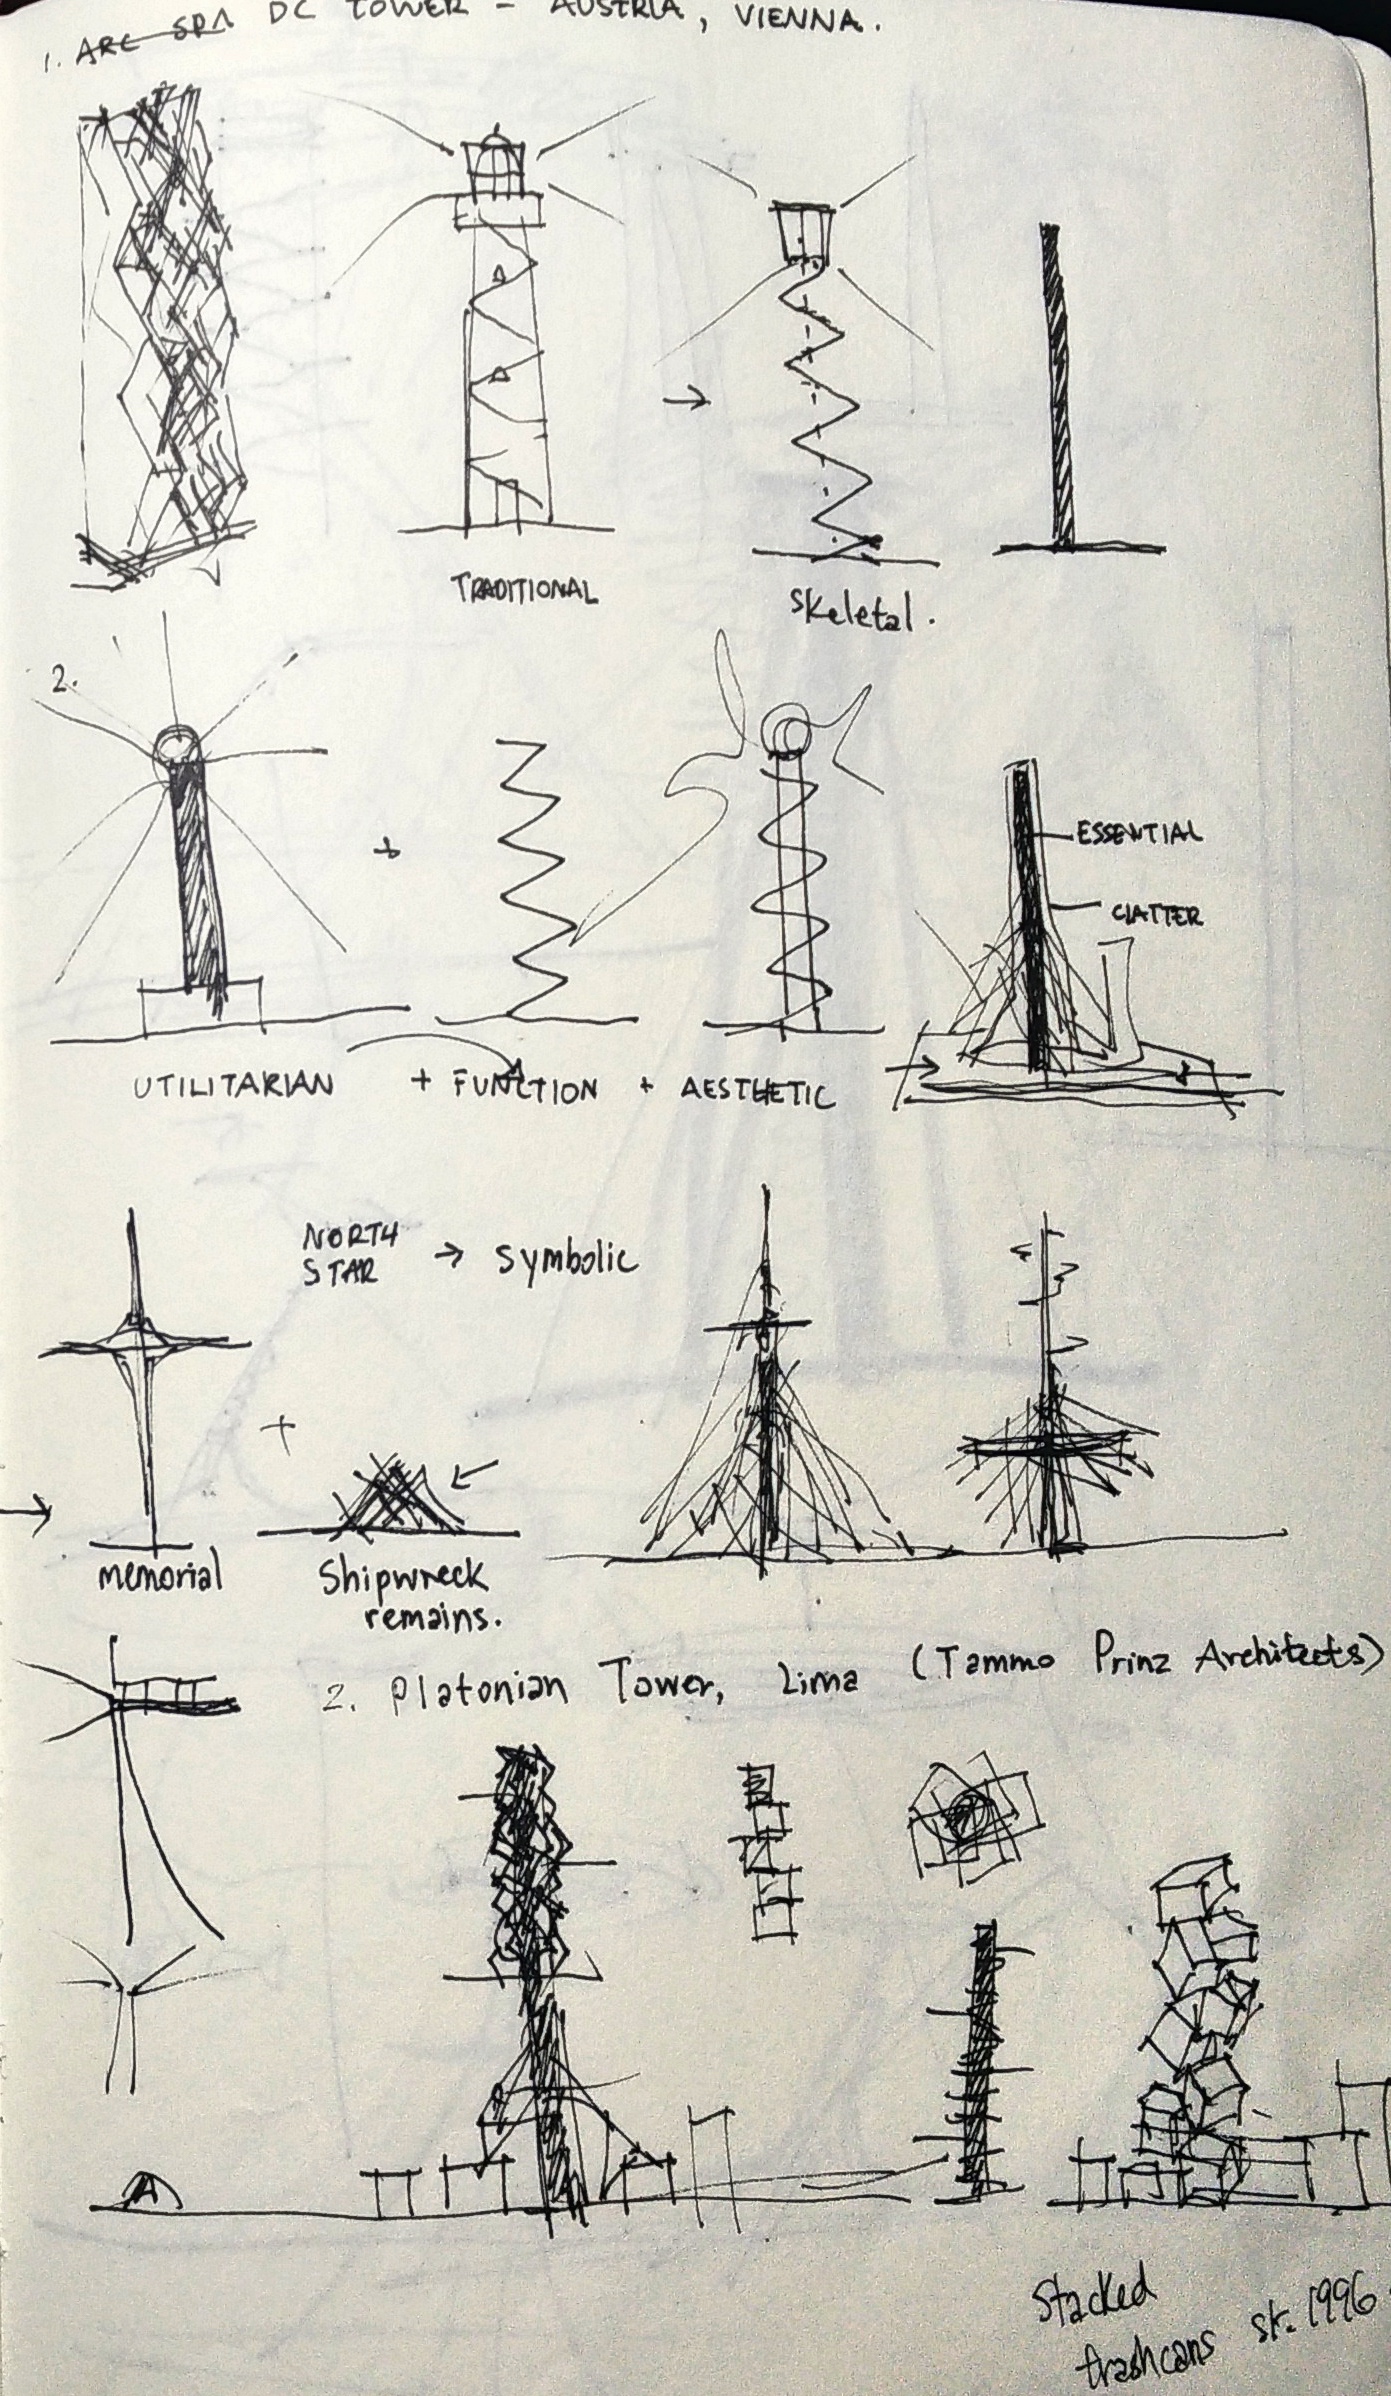 1. ARC SPA DC TOWER - AUSTRIA, VIENNA.
TRADITIONAL
Skeletal.
2.
ESSENTIAL
CLATTER
UTILITARIAN + FUNCTION + AESTHETIC
NORTH
STAR → symbolic
memorial
Shipwreck
remains.
2. Platonian Tower, Lima (Tammo Prinz Architects)
Stacked
trashcans sk. 1996